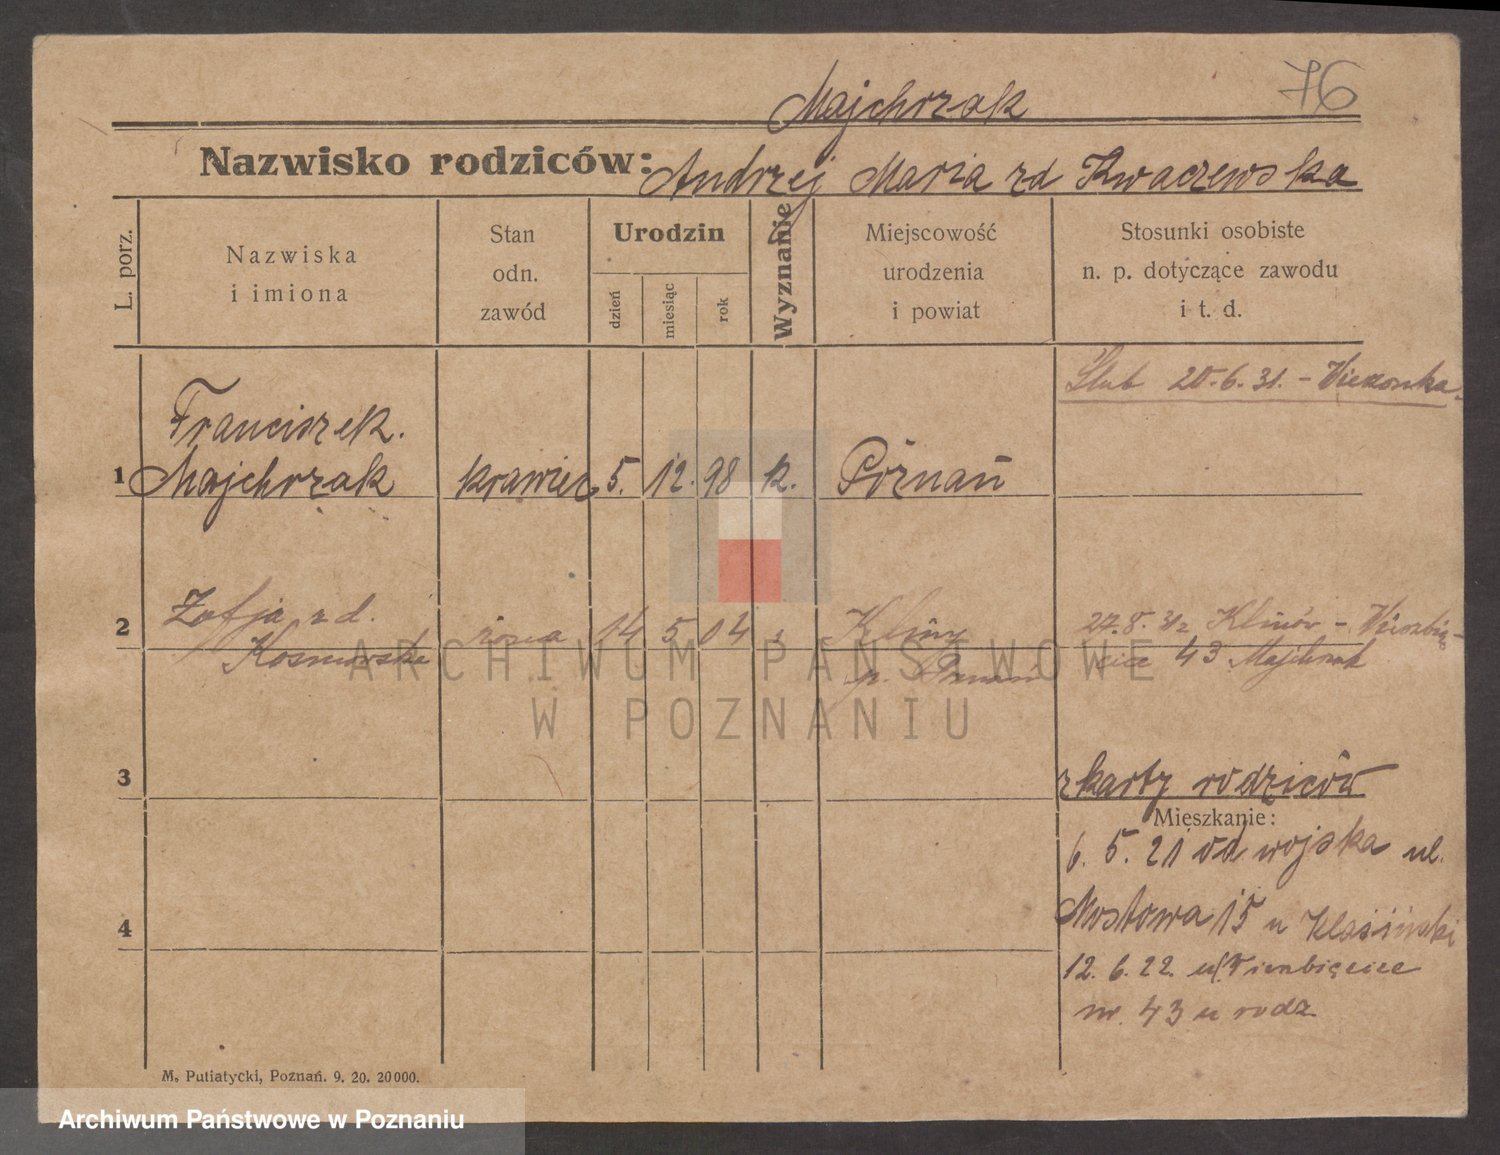 76
Majchrzak
Nazwisko rodziców: Andrzej Maria zd Kwaczewska
L. porz.
Nazwiska
i imiona
Stan
odn.
zawód
Urodzin
dzień
miesiąc
rok
Wyznanie
Miejscowość
urodzenia
i powiat
Stosunki osobiste
n. p. dotyczące zawodu
i t. d.
Ślub 20.6.31. -
Franciszek.
1 Majchrzak krawiec 5. 12. 98 k. Poznań
2 Zofja zd. żona 14 5 04 Kliny
27.8.31 z Klinów -
43 Majchrzak
p. Poznań
ARCHIWUM PAŃSTWOWE
W POZNANIU
3
z karty rodziców
Mieszkanie:
6. 5. 21 od wojska ul.
4
Mostowa 15 u
12. 6. 22. ul. Wierzbięcice
nr. 43 u rodz
M. Putiatycki, Poznań. 9. 20. 20000.
Archiwum Państwowe w Poznaniu